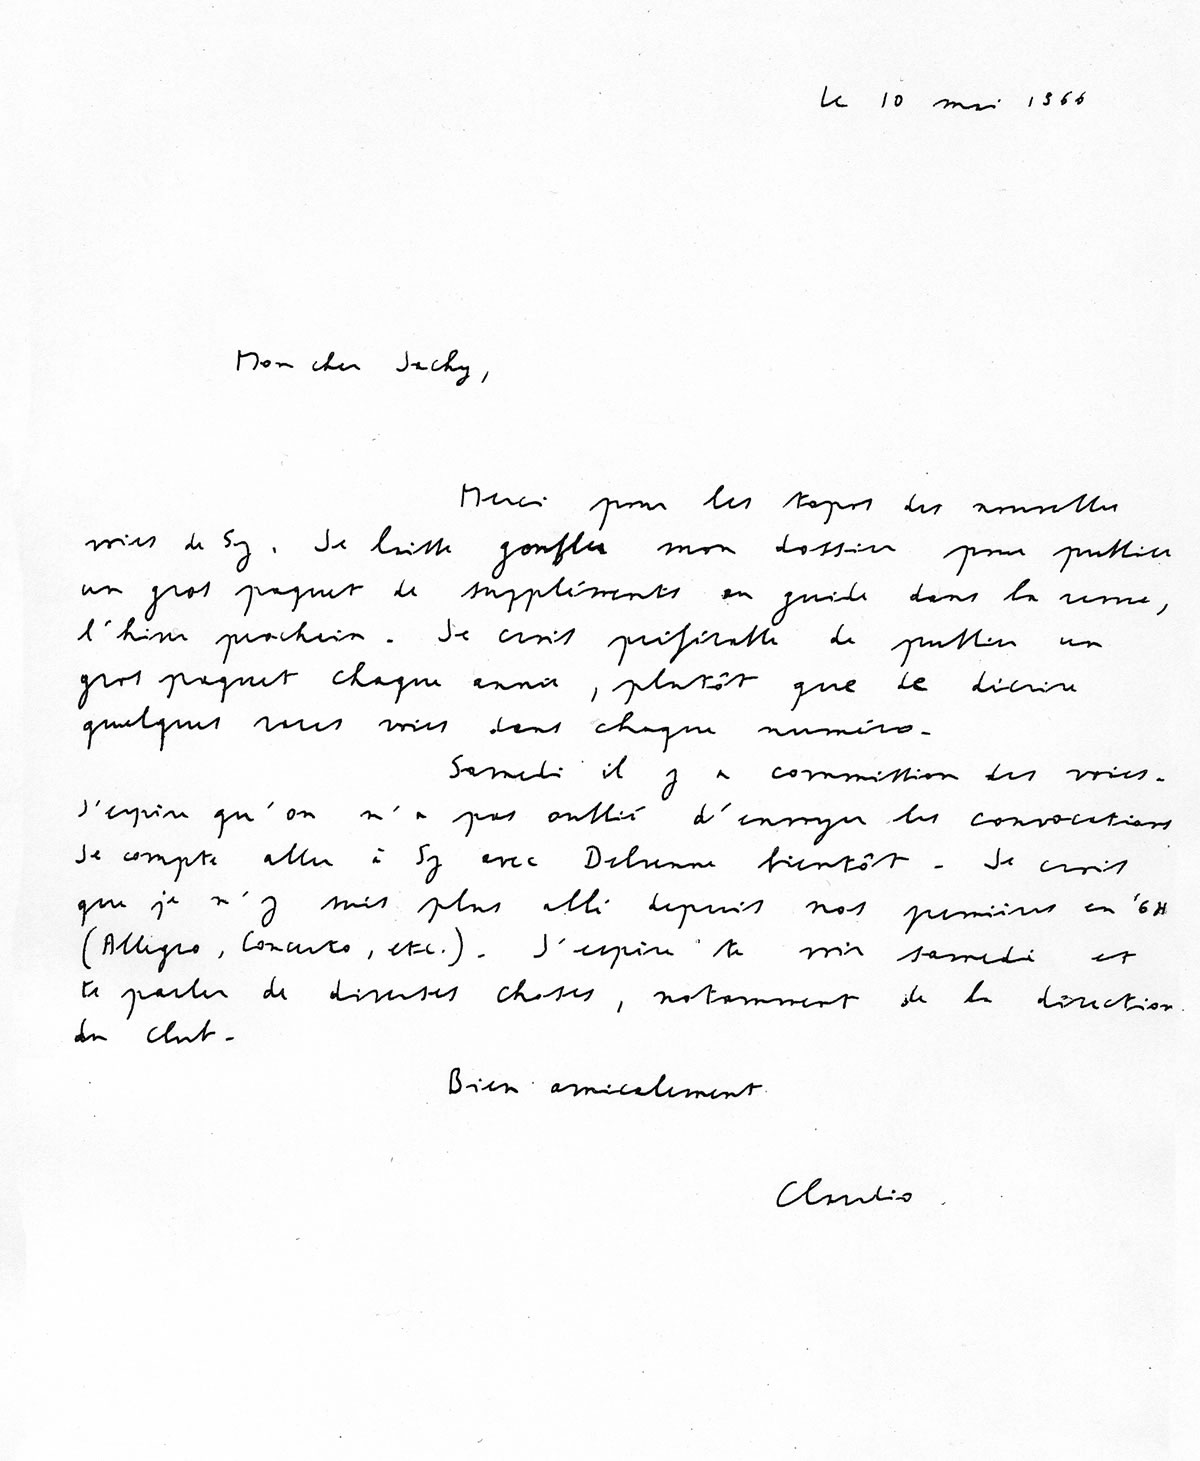 le 10 mai 1966
Mon cher Jacky,
Merci pour les topos des nouvelles
voies de Sy. Je laisse gonfler mon dossier pour publier
un gros paquet de suppléments au guide dans la revue,
l'hiver prochain. Je crois préférable de publier un
gros paquet chaque année, plutôt que de décrire
quelques rares voies dans chaque numéro.
Samedi il y a commission des voies.
J'espère qu'on n'a pas oublié d'envoyer les convocations
Je compte aller à Sy avec Delvenne bientôt. Je crois
que je n'y suis plus allé depuis nos premières en
(Allegro, Concerto, etc.). J'espère te voir samedi et
te parler de diverses choses, notamment de la direction
du club.
Bien amicalement
Claudio.